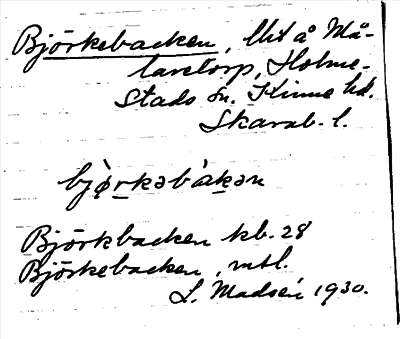 Björkebacken, lht å Må-
laretorp, Holme-
stads sn. Kinne hd.
Skarab. l.
bjö̀rkəbàkən
Björkbacken kb. 28
Björkebacken, mtl.
L. Madsén 1930.